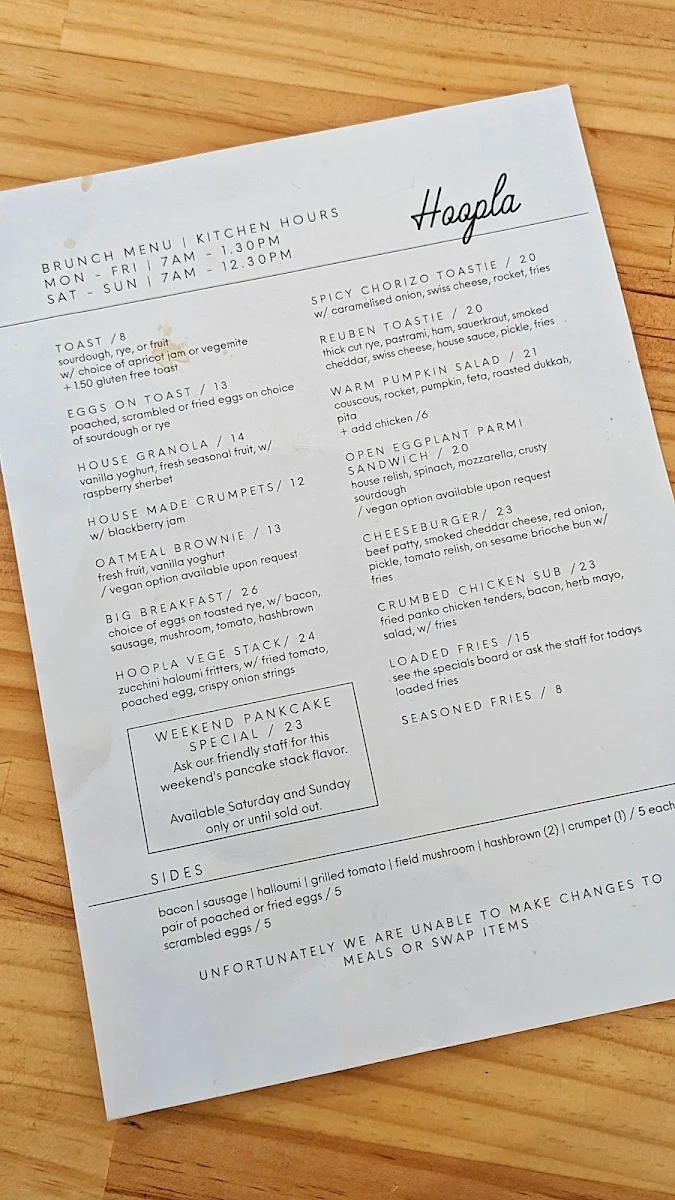 Hoopla
BRUNCH MENU | KITCHEN HOURS
MON - FRI | 7AM - 1.30PM
SAT - SUN | 7AM - 12.30PM
TOAST /8
sourdough, rye, or fruit
w/ choice of apricot jam or vegemite
+1.50 gluten free toast
EGGS ON TOAST / 13
poached, scrambled or fried eggs on choice
of sourdough or rye
HOUSE GRANOLA / 14
vanilla yoghurt, fresh seasonal fruit, w/
raspberry sherbet
HOUSE MADE CRUMPETS/ 12
w/ blackberry jam
OATMEAL BROWNIE / 13
fresh fruit, vanilla yoghurt
/ vegan option available upon request
BIG BREAKFAST/ 26
choice of eggs on toasted rye, w/ bacon,
sausage, mushroom, tomato, hashbrown
HOOPLA VEGE STACK/ 24
zucchini haloumi fritters, w/ fried tomato,
poached egg, crispy onion strings
WEEKEND PANKCAKE
SPECIAL / 23
Ask our friendly staff for this
weekend's pancake stack flavor.
Available Saturday and Sunday
only or until sold out.
SPICY CHORIZO TOASTIE / 20
w/ caramelised onion, swiss cheese, rocket, fries
REUBEN TOASTIE / 20
thick cut rye, pastrami, ham, sauerkraut, smoked
cheddar, swiss cheese, house sauce, pickle, fries
WARM PUMPKIN SALAD / 21
couscous, rocket, pumpkin, feta, roasted dukkah,
pita
+ add chicken /6
OPEN EGGPLANT PARMI
SANDWICH / 20
house relish, spinach, mozzarella, crusty
sourdough
/ vegan option available upon request
CHEESEBURGER/ 23
beef patty, smoked cheddar cheese, red onion,
pickle, tomato relish, on sesame brioche bun w/
fries
CRUMBED CHICKEN SUB /23
fried panko chicken tenders, bacon, herb mayo,
salad, w/ fries
LOADED FRIES /15
see the specials board or ask the staff for todays
loaded fries
SEASONED FRIES / 8
SIDES
bacon | sausage | halloumi | grilled tomato | field mushroom | hashbrown (2) | crumpet (1) / 5 each
pair of poached or fried eggs / 5
scrambled eggs / 5
UNFORTUNATELY WE ARE UNABLE TO MAKE CHANGES TO
MEALS OR SWAP ITEMS